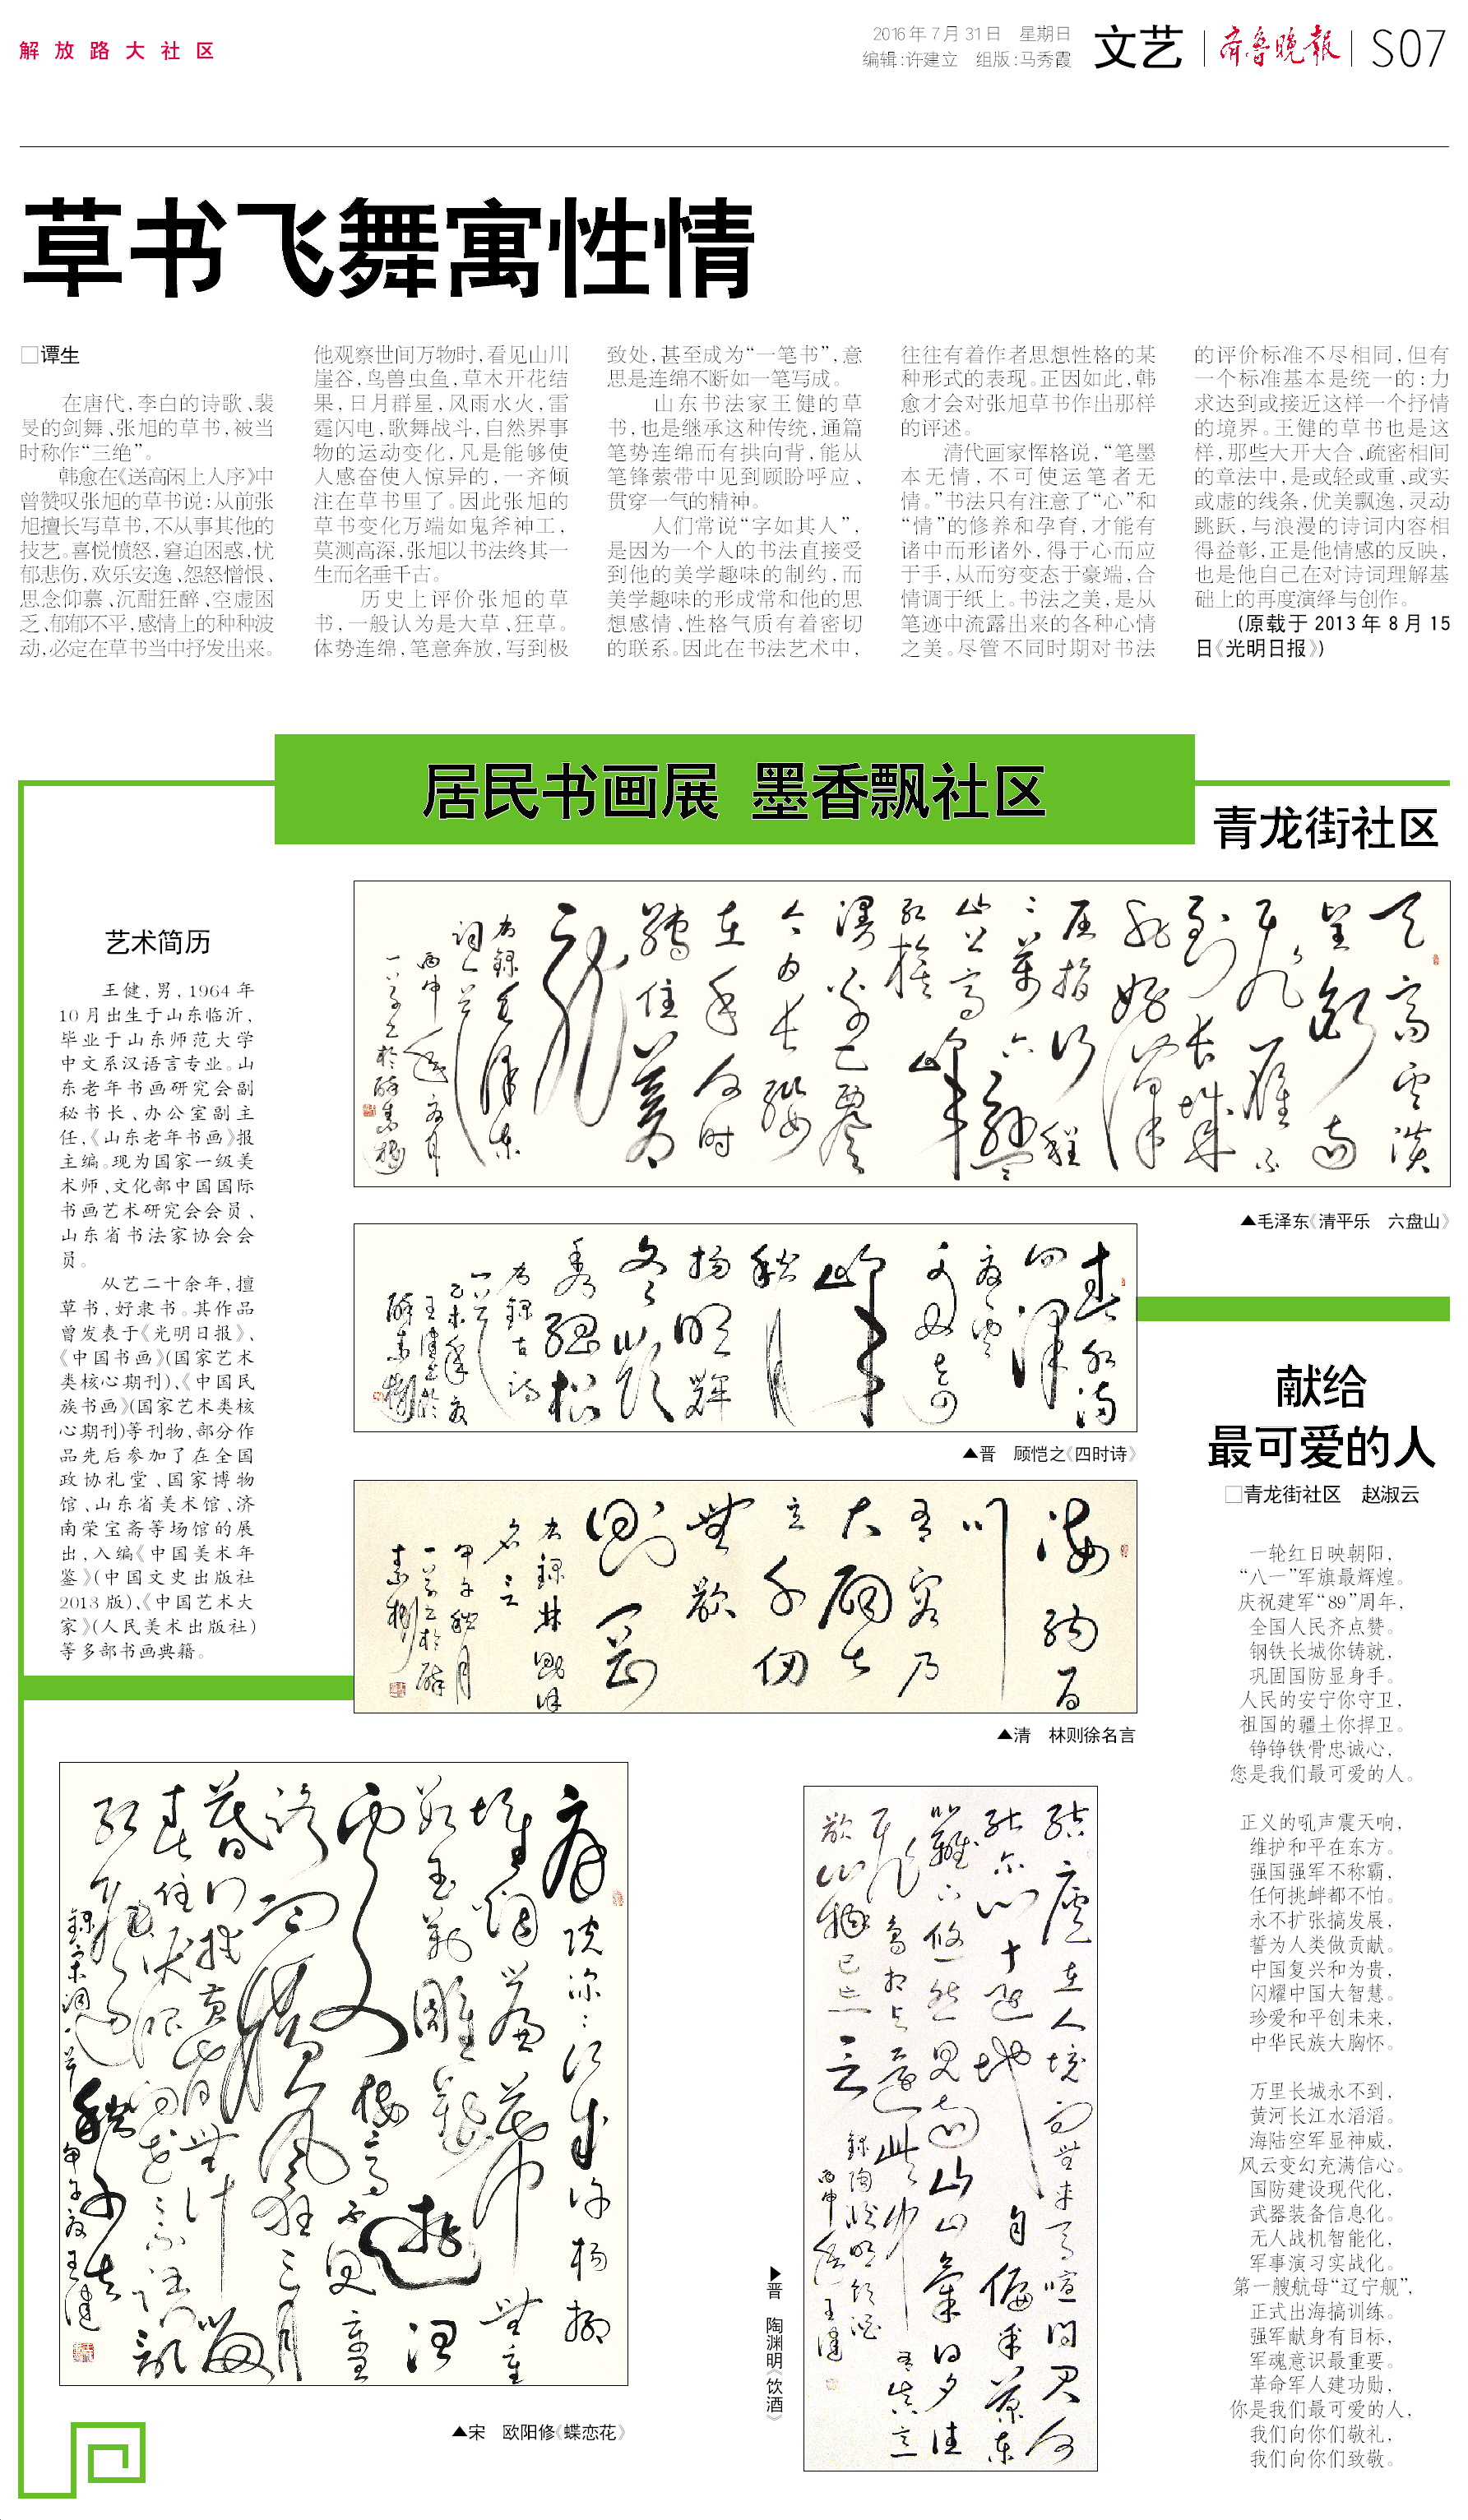 解放路大社区
2016年7月31日 星期日
编辑:许建立 组版:马秀霞
文艺
齐鲁晚报
S07
草书飞舞寓性情
□谭生
在唐代,李白的诗歌、裴
旻的剑舞、张旭的草书,被当
时称作“三绝”。
韩愈在《送高闲上人序》中
曾赞叹张旭的草书说:从前张
旭擅长写草书,不从事其他的
技艺。喜悦愤怒,窘迫困惑,忧
郁悲伤,欢乐安逸、怨怒憎恨、
思念仰慕、沉酣狂醉、空虚困
乏、郁郁不平,感情上的种种波
动,必定在草书当中抒发出来。
他观察世间万物时,看见山川
崖谷,鸟兽虫鱼,草木开花结
果,日月群星,风雨水火,雷
霆闪电,歌舞战斗,自然界事
物的运动变化,凡是能够使
人感奋使人惊异的,一齐倾
注在草书里了。因此张旭的
草书变化万端如鬼斧神工,
莫测高深,张旭以书法终其一
生而名垂千古。
历史上评价张旭的草
书,一般认为是大草、狂草。
体势连绵,笔意奔放,写到极
致处,甚至成为“一笔书”,意
思是连绵不断如一笔写成。
山东书法家王健的草
书,也是继承这种传统,通篇
笔势连绵而有拱向背,能从
笔锋萦带中见到顾盼呼应、
贯穿一气的精神。
人们常说“字如其人”,
是因为一个人的书法直接受
到他的美学趣味的制约,而
美学趣味的形成常和他的思
想感情、性格气质有着密切
的联系。因此在书法艺术中,
往往有着作者思想性格的某
种形式的表现。正因如此,韩
愈才会对张旭草书作出那样
的评述。
清代画家恽格说,“笔墨
本无情,不可使运笔者无
情。”书法只有注意了“心”和
“情”的修养和孕育,才能有
诸中而形诸外,得于心而应
于手,从而穷变态于豪端,合
情调于纸上。书法之美,是从
笔迹中流露出来的各种心情
之美。尽管不同时期对书法
的评价标准不尽相同,但有
一个标准基本是统一的:力
求达到或接近这样一个抒情
的境界。王健的草书也是这
样,那些大开大合、疏密相间
的章法中,是或轻或重、或实
或虚的线条,优美飘逸,灵动
跳跃,与浪漫的诗词内容相
得益彰,正是他情感的反映,
也是他自己在对诗词理解基
础上的再度演绎与创作。
(原载于2013年8月15
日《光明日报》)
居民书画展 墨香飘社区
青龙街社区
艺术简历
王健,男,1964年
10月出生于山东临沂,
毕业于山东师范大学
中文系汉语言专业。山
东老年书画研究会副
秘书长、办公室副主
任,《山东老年书画》报
主编。现为国家一级美
术师、文化部中国国际
书画艺术研究会会员、
山东省书法家协会会
员。
从艺二十余年,擅
草书,好隶书。其作品
曾发表于《光明日报》、
《中国书画》(国家艺术
类核心期刊)、《中国民
族书画》(国家艺术类核
心期刊)等刊物,部分作
品先后参加了在全国
政协礼堂、国家博物
馆、山东省美术馆、济
南荣宝斋等场馆的展
出,入编《中国美术年
鉴》(中国文史出版社
2013版)、《中国艺术大
家》(人民美术出版社)
等多部书画典籍。
▲毛泽东《清平乐 六盘山》
▲晋 顾恺之《四时诗》
▲清 林则徐名言
▲宋 欧阳修《蝶恋花》
▶晋 陶渊明《饮酒》
献给
最可爱的人
□青龙街社区 赵淑云
一轮红日映朝阳,
“八一”军旗最辉煌。
庆祝建军“89”周年,
全国人民齐点赞。
钢铁长城你铸就,
巩固国防显身手。
人民的安宁你守卫,
祖国的疆土你捍卫。
铮铮铁骨忠诚心,
您是我们最可爱的人。
正义的吼声震天响,
维护和平在东方。
强国强军不称霸,
任何挑衅都不怕。
永不扩张搞发展,
誓为人类做贡献。
中国复兴和为贵,
闪耀中国大智慧。
珍爱和平创未来,
中华民族大胸怀。
万里长城永不到,
黄河长江水滔滔。
海陆空军显神威,
风云变幻充满信心。
国防建设现代化,
武器装备信息化。
无人战机智能化,
军事演习实战化。
第一艘航母“辽宁舰”,
正式出海搞训练。
强军献身有目标,
军魂意识最重要。
革命军人建功勋,
你是我们最可爱的人,
我们向你们敬礼,
我们向你们致敬。